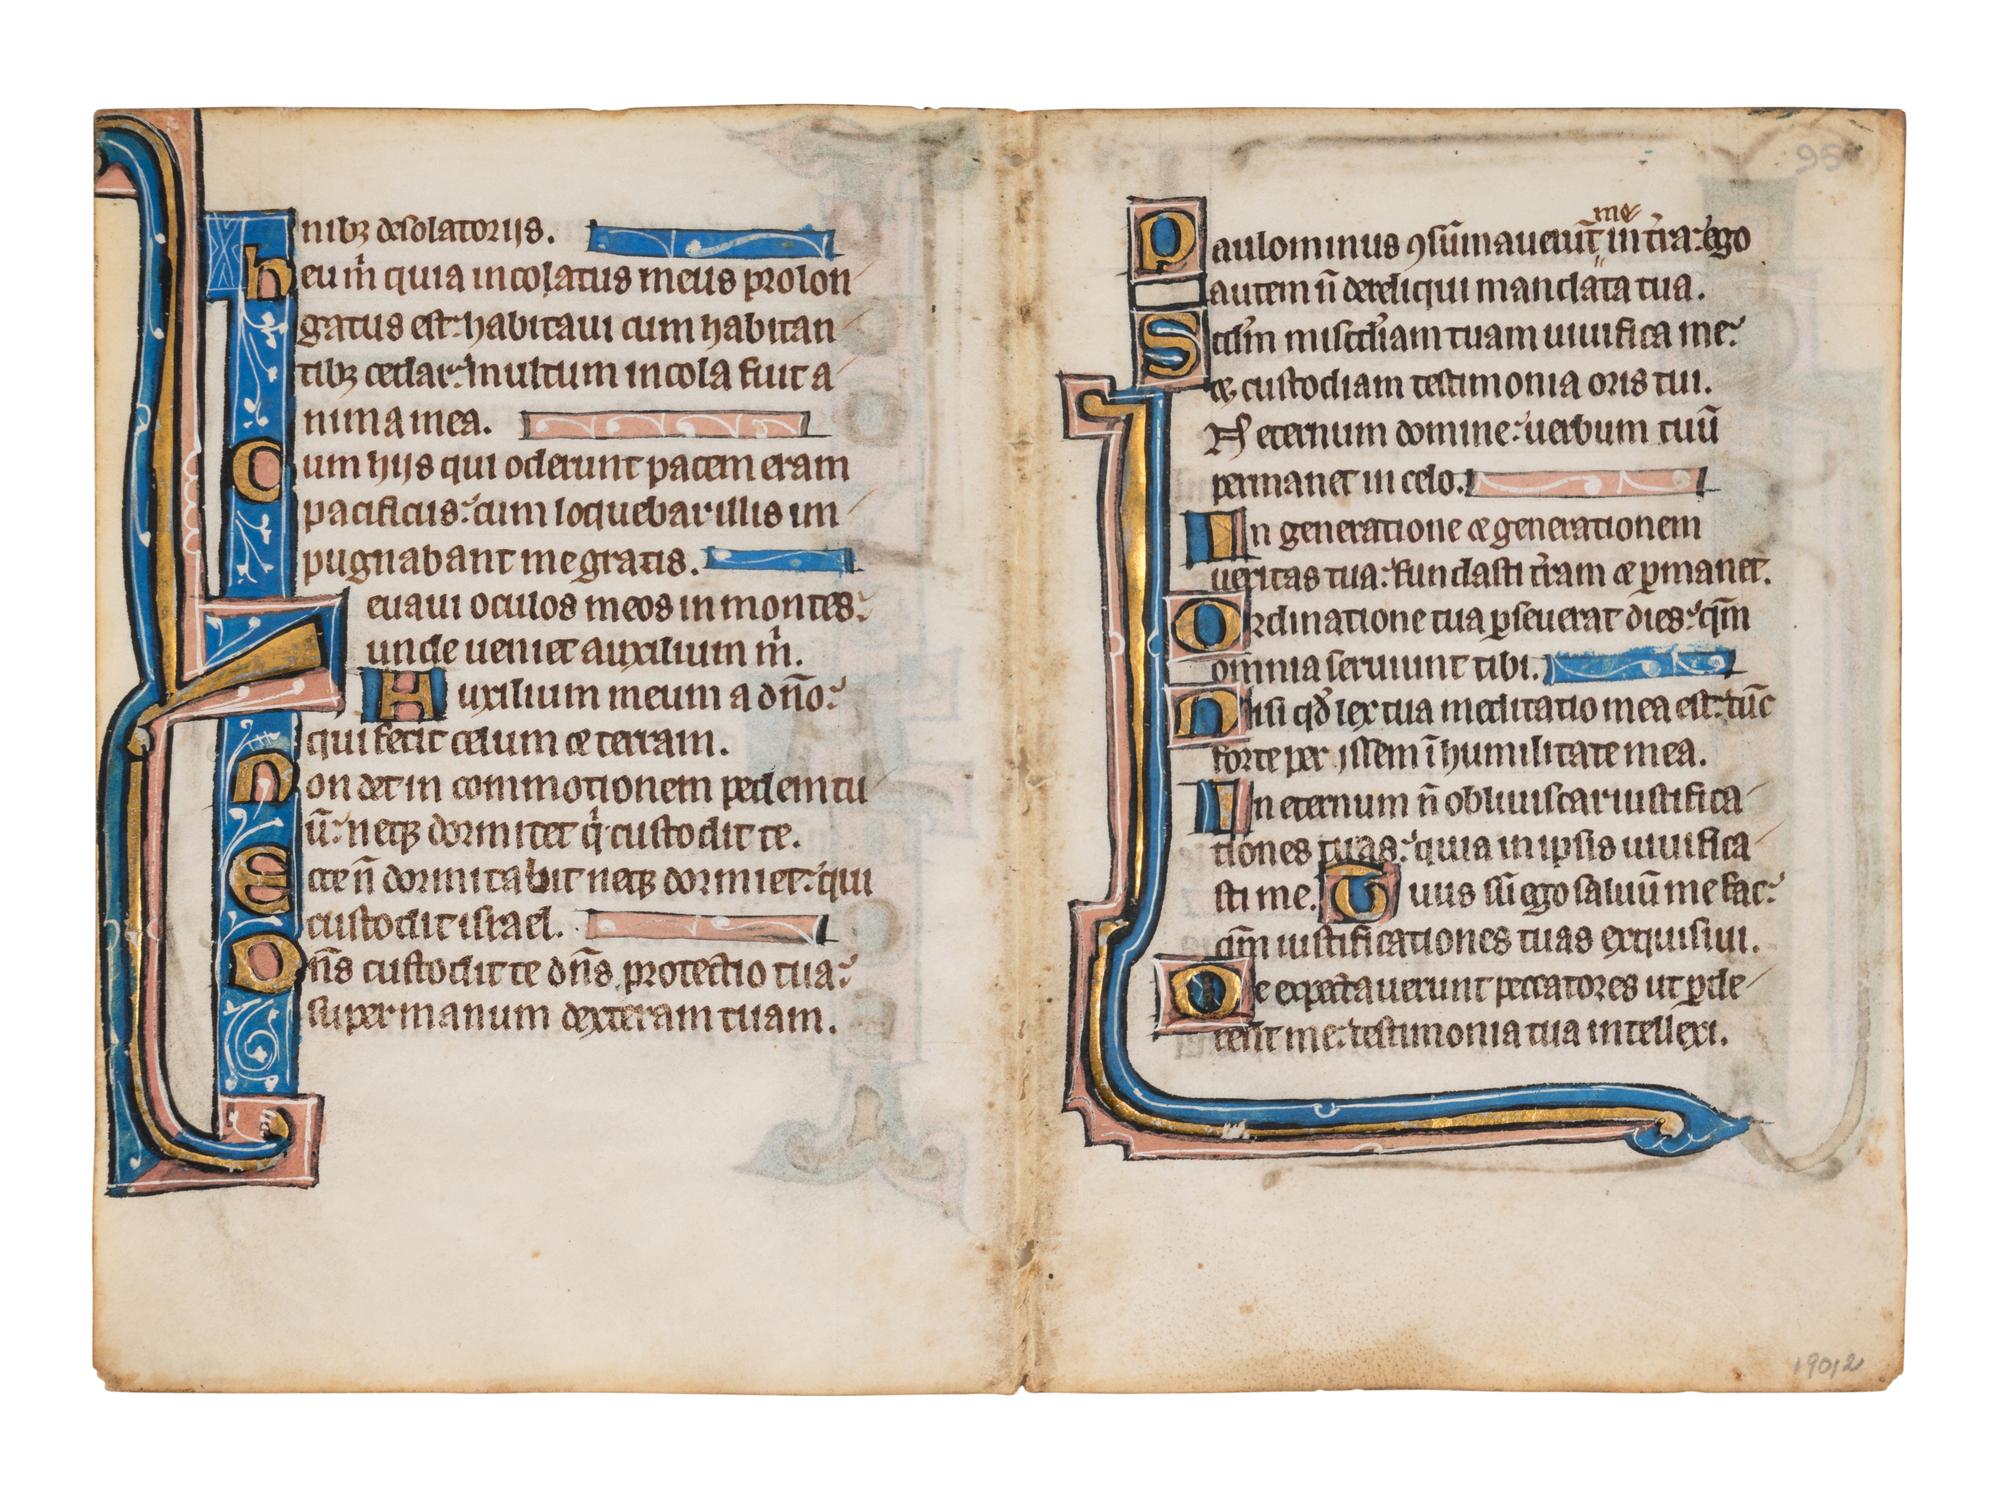 nibꝫ desolatoriis.
heu m̄ quia incolatus meus prolon
gatus est: habitaui cum habitan
tibꝫ cedar: multum incola fuit a
nima mea.
Cum hiis qui oderunt pacem eram
pacificus: cum loquebar illis im
pugnabant me gratis.
Leuaui oculos meos in montes:
unde ueniet auxilium m̄.
Auxilium meum a dn̄o:
qui fecit celum ⁊ terram.
Non det in commotionem pedem tu
ū: neqꝫ dormitet q̄ custodit te.
Ecce n̄ dormitabit neqꝫ dormiet: qui
custodit israel.
Dn̄s custodit te dn̄s protectio tua:
super manum dexteram tuam.
95
me
Paulominus ꝯsūmauerūt in tr̄a: ego
autem n̄ dereliqui mandata tua.
Scdm̄ miscd̄iam tuam uiuifica me:
⁊ custodiam testimonia oris tui.
IN eternum domine: uerbum tuū
permanet in celo.
In generatione ⁊ generationem
ueritas tua: fundasti tr̄am ⁊ ꝑmanet.
Ordinatione tua ꝑseuerat dies: qm̄
omnia seruiunt tibi.
Nisi qd̄ lex tua meditatio mea est: tūc
forte perissem ī humilitate mea.
In eternum n̄ obliuiscar iustifica
tiones tuas: quia in ipsis uiuifica
sti me. Tuus sū ego saluū me fac:
qm̄ iustificationes tuas exquisiui.
Me expectauerunt peccatores ut ꝑde
rent me: testimonia tua intellexi.
190/2